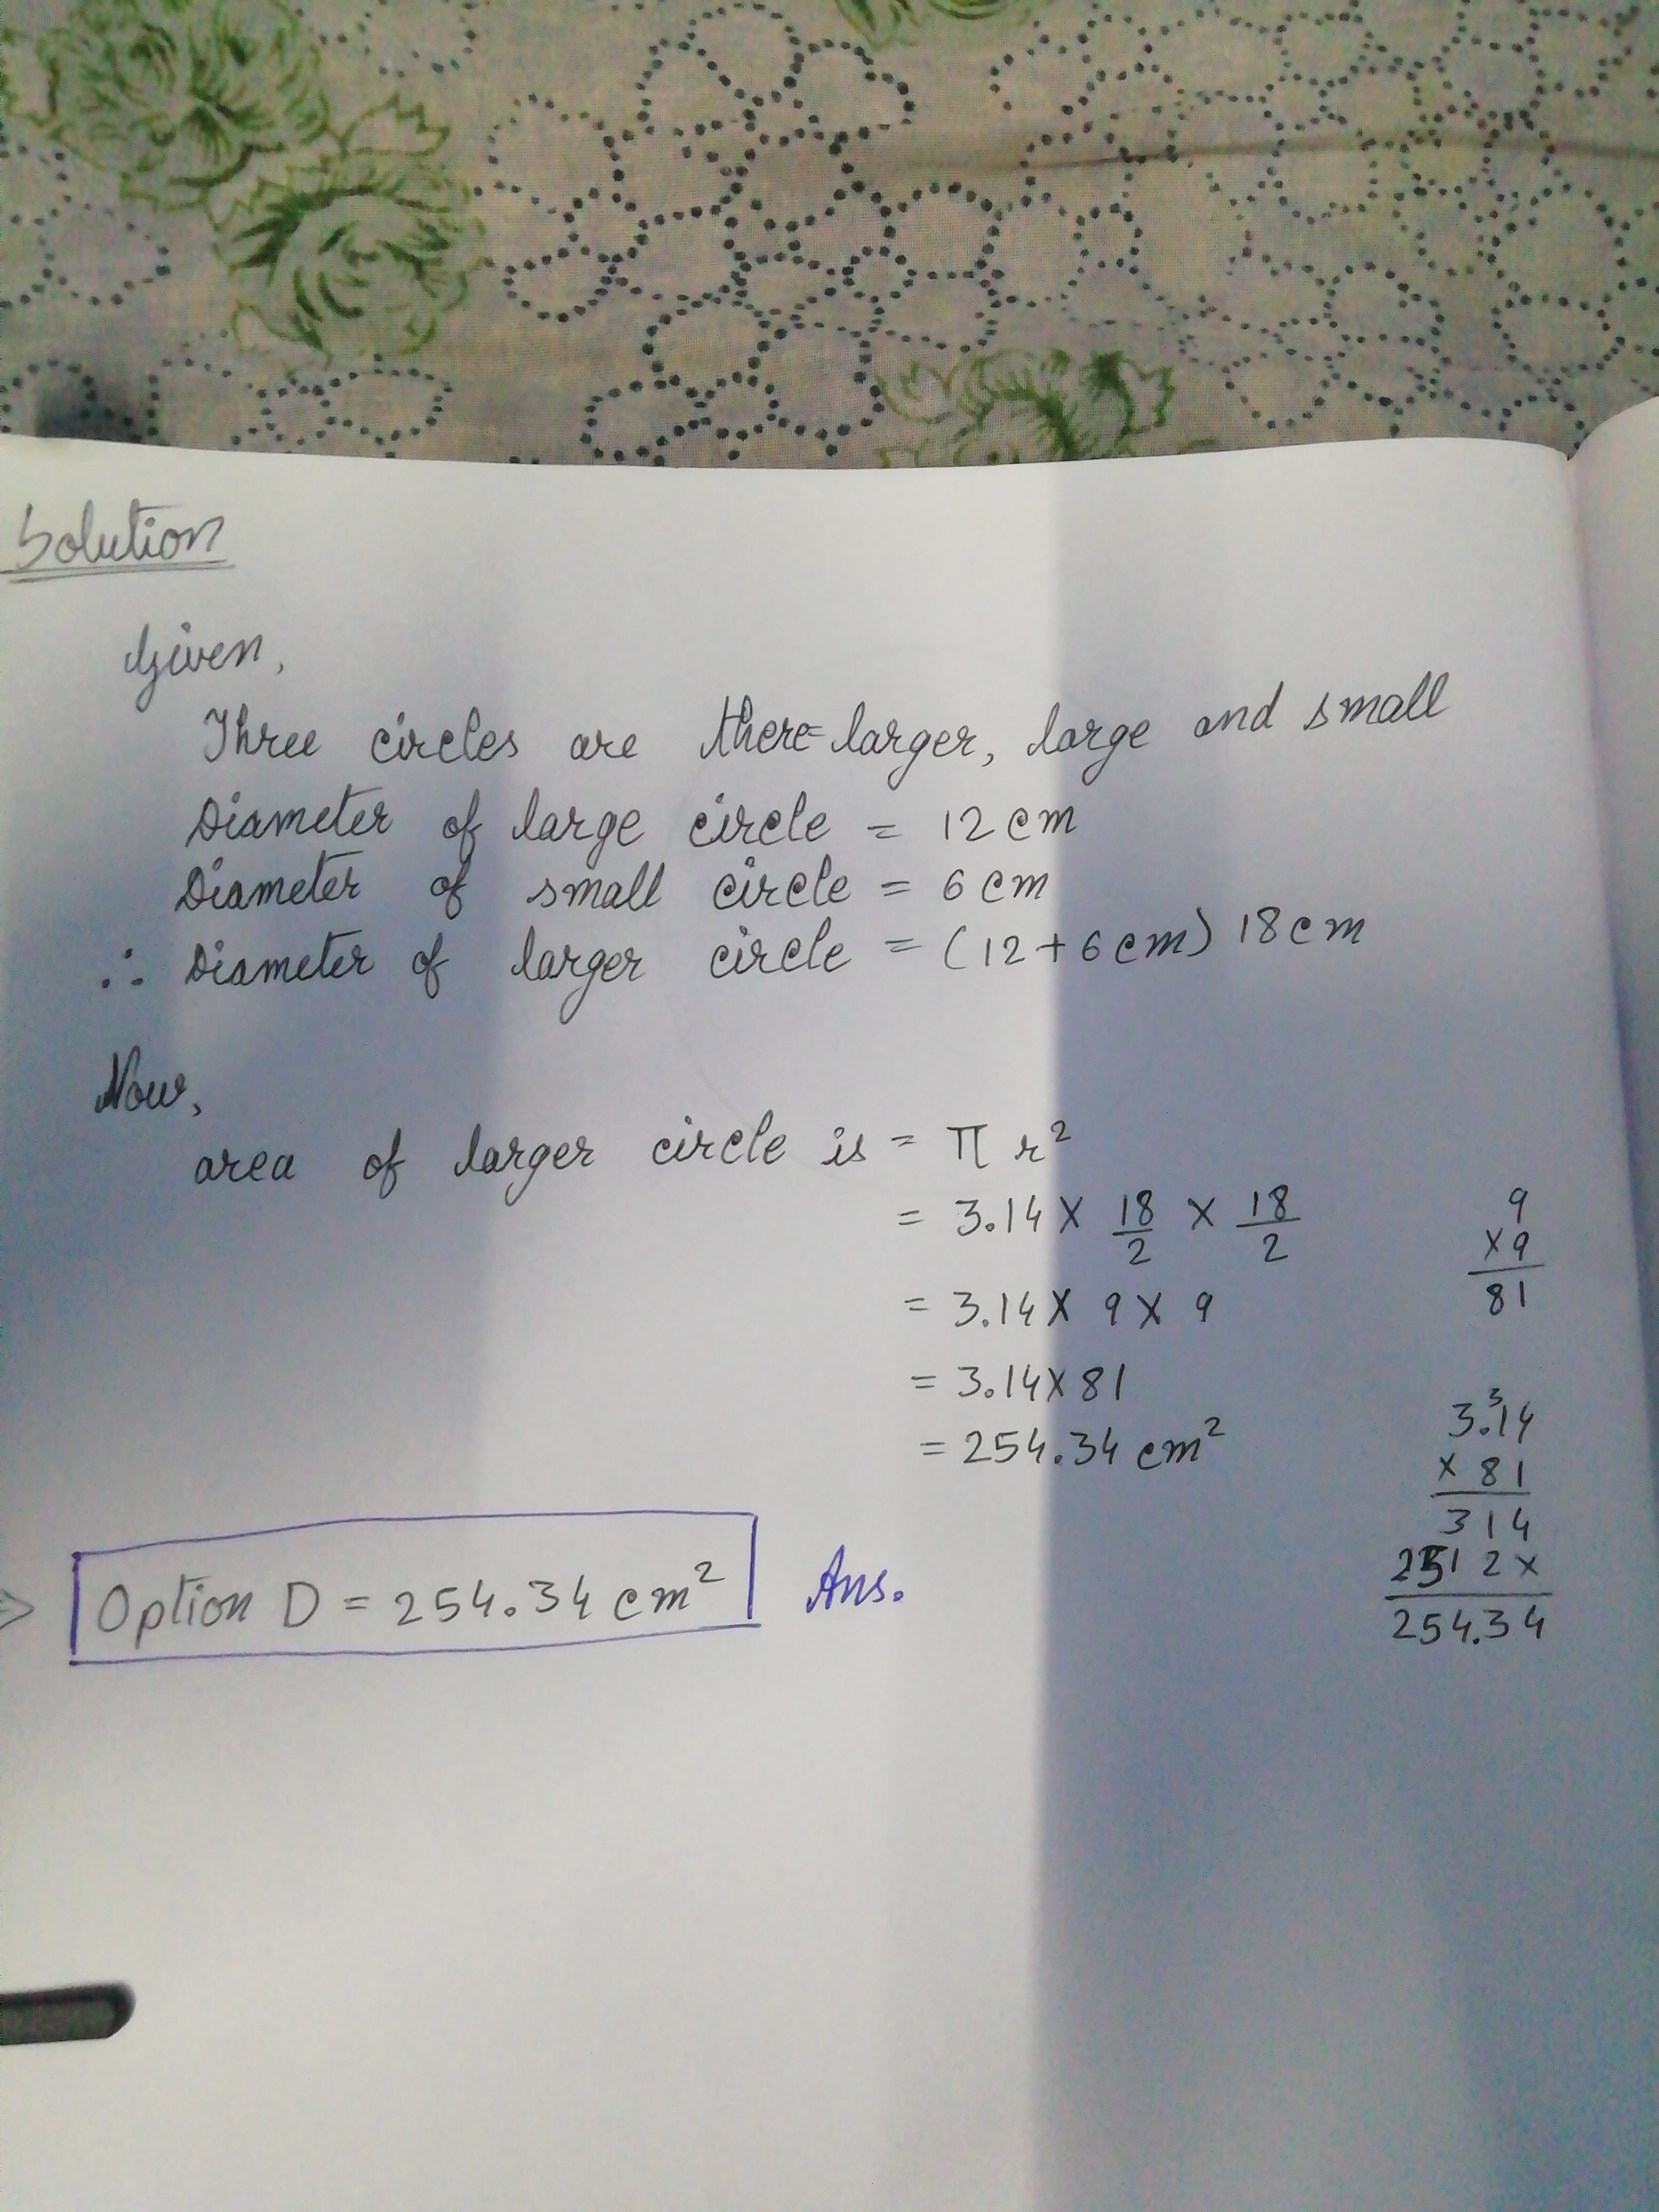 Solution
Given,
Three circles are there-larger, large and small
Diameter of large circle = 12 cm
Diameter of small circle = 6 cm
∴ Diameter of larger circle = (12 + 6 cm) 18 cm
Now,
area of larger circle is = π r²
= 3.14 × 18/2 × 18/2
= 3.14 × 9 × 9
= 3.14 × 81
= 254.34 cm²
9
× 9
81
3
3.14
× 81
314
2512×
254.34
⇒ Option D = 254.34 cm² Ans.